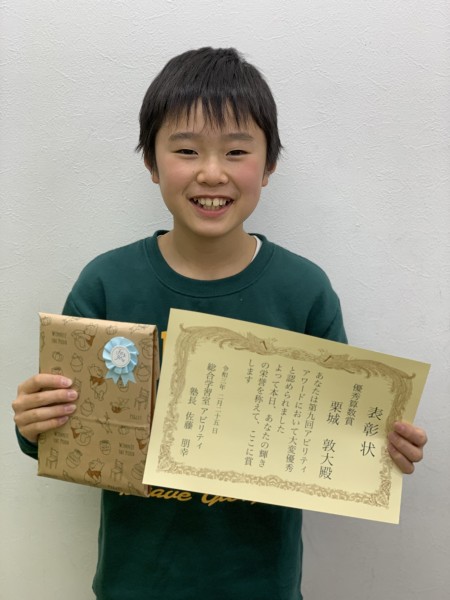 表彰状
優秀算数賞
栗城 敦大殿
あなたは第九回アビリティ
アワードにおいて大変優秀
と認められました
よって本日、あなたの輝き
の栄誉を称えて、ここに賞
します
令和三年 二月二十五日
総合学習室 アビリティ
塾長 佐藤 朋幸